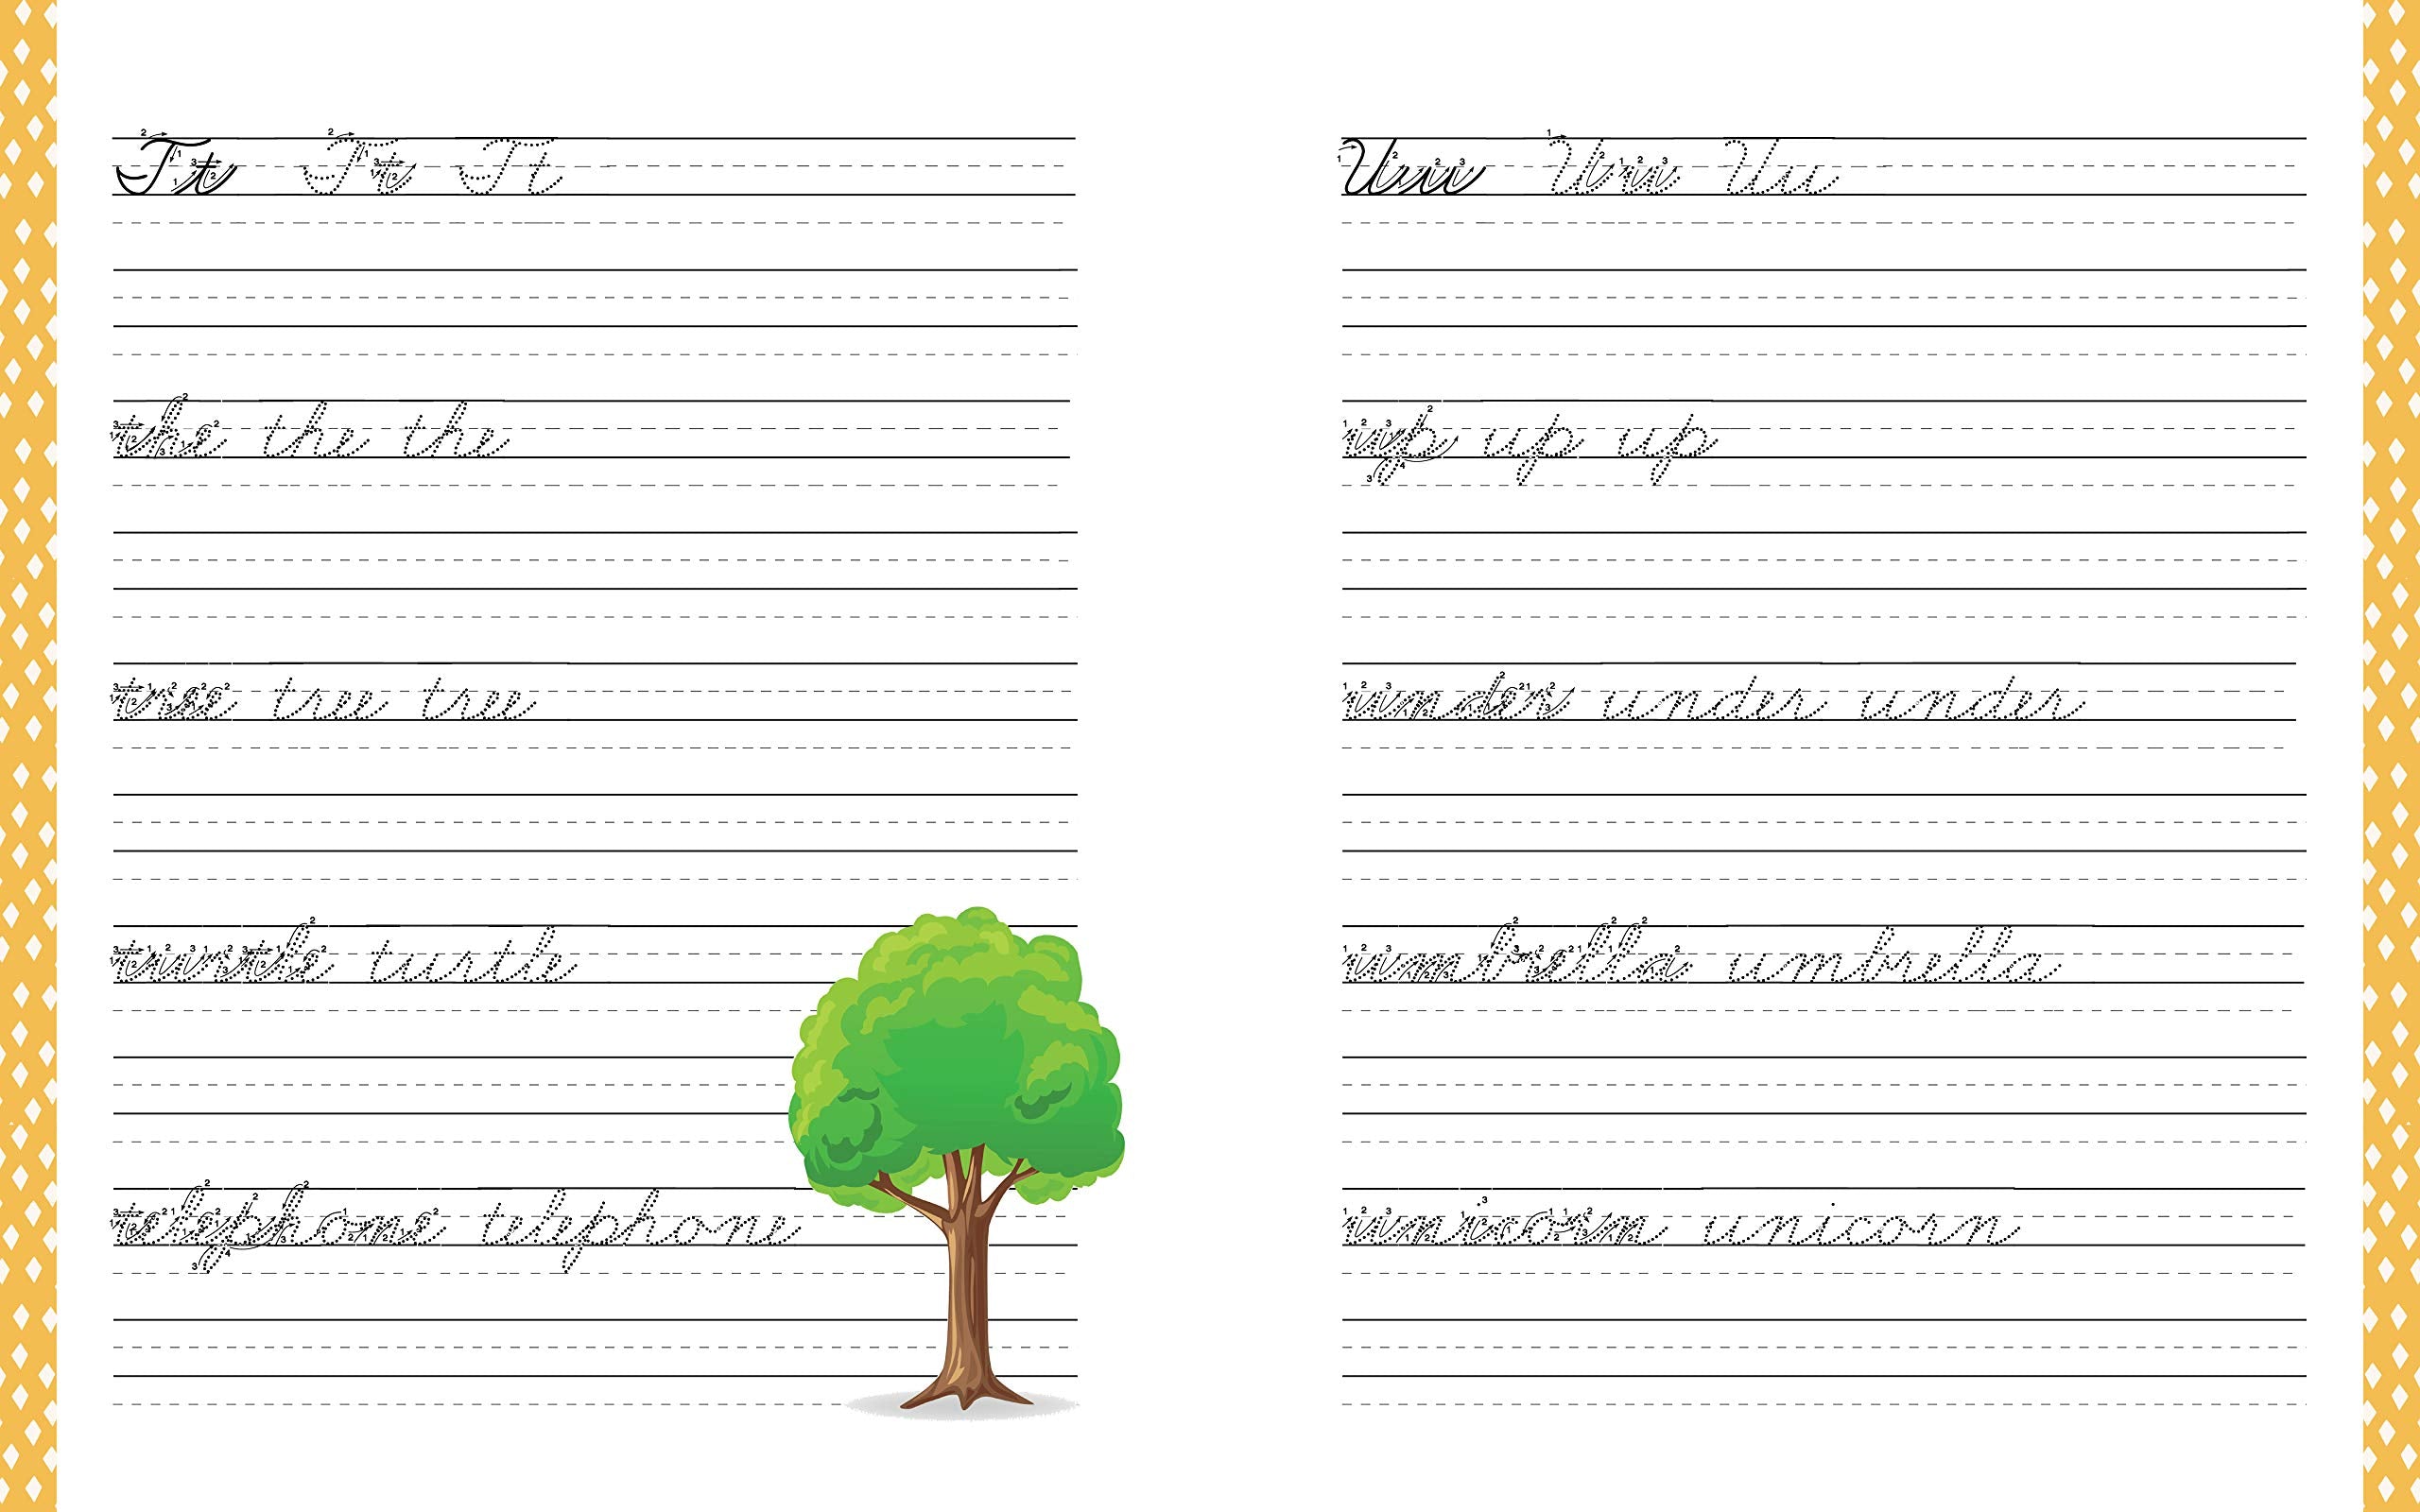 Tt Tt Tt
the the the
tree tree tree
turtle turtle
telephone telephone
Uu Uu Uu
up up up
under under under
umbrella umbrella
unicorn unicorn